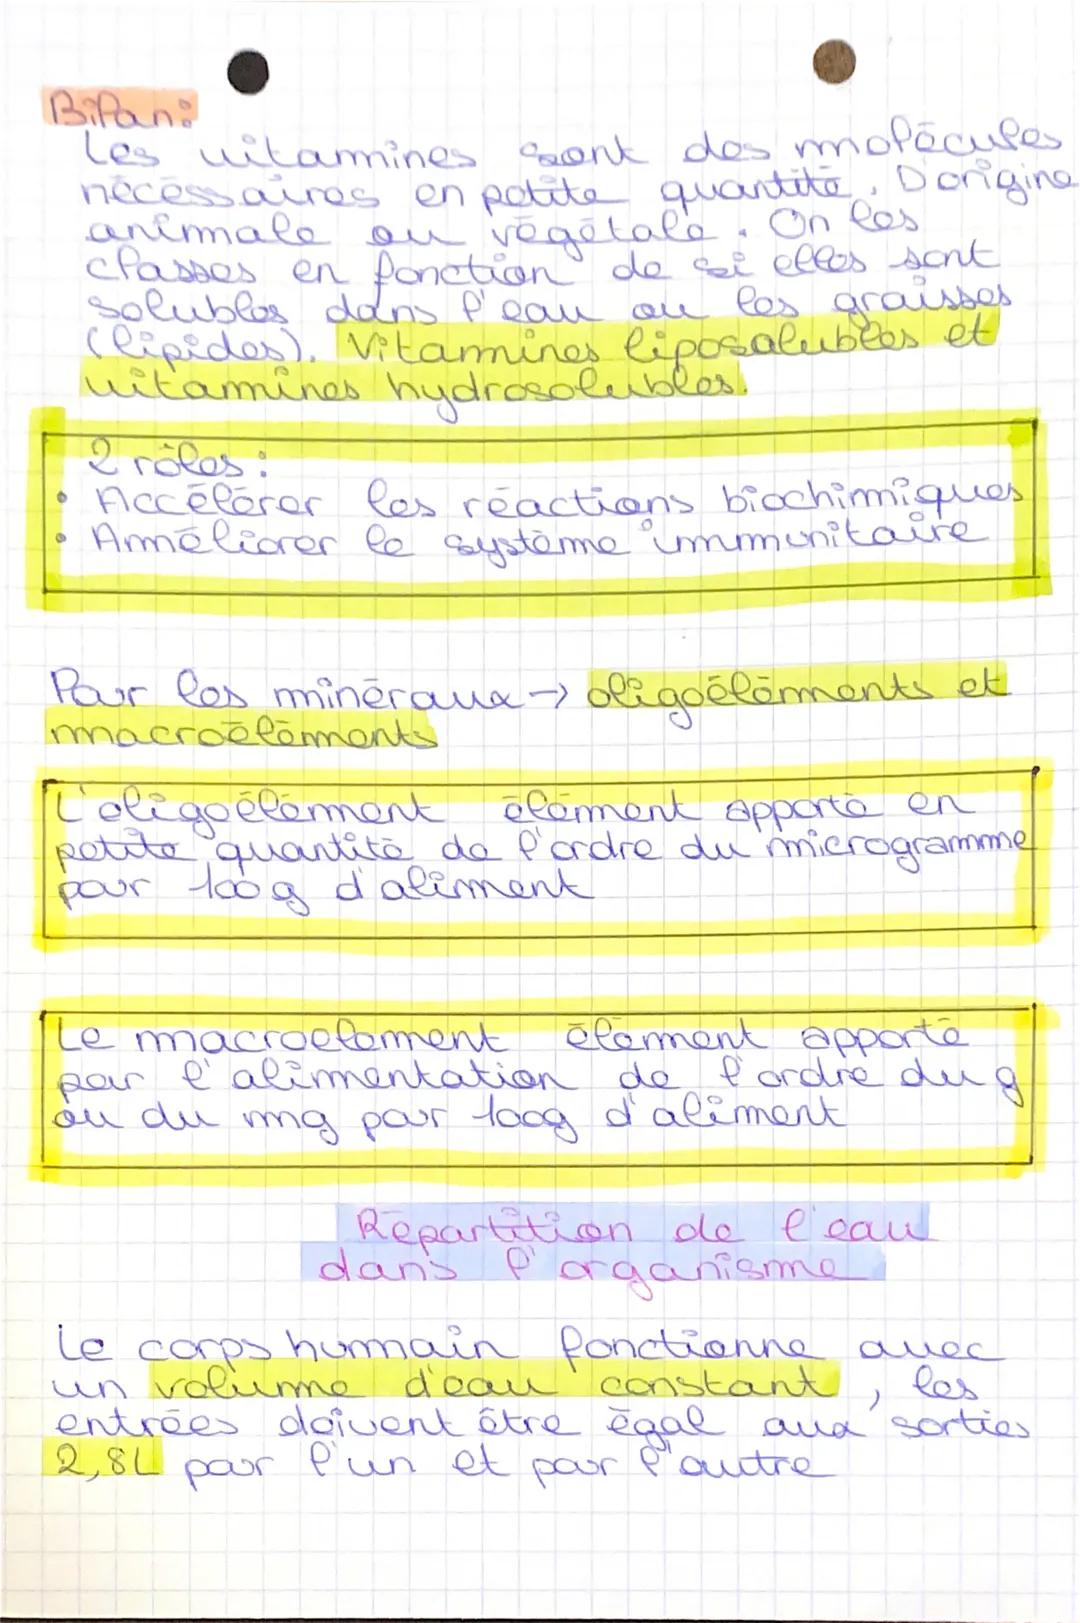 Bilan:
Les vitamines sont des molécules
nécessaires en petite quantité. D'origine
animale ou végétale. On les
classes en fonction de si elles sont
solubles dans l'eau ou les graisses
(lipides). Vitamines liposolubles et
vitamines hydrosolubles.
2 rôles :
• Accélérer les réactions biochimiques
• Améliorer le système immunitaire
Pour les minéraux → oligoéléments et
macroéléments
L'oligoélément élément apporté en
petite quantité de l'ordre du microgramme
pour 100g d'aliment
Le macroelement élément apporté
par l'alimentation de l'ordre du g
ou du mg pour 100g d'aliment
Répartition de l'eau
dans l'organisme
Le corps humain fonctionne avec
un volume d'eau constant, les
entrées doivent être égal aux sorties
2,8L pour l'un et pour l'autre